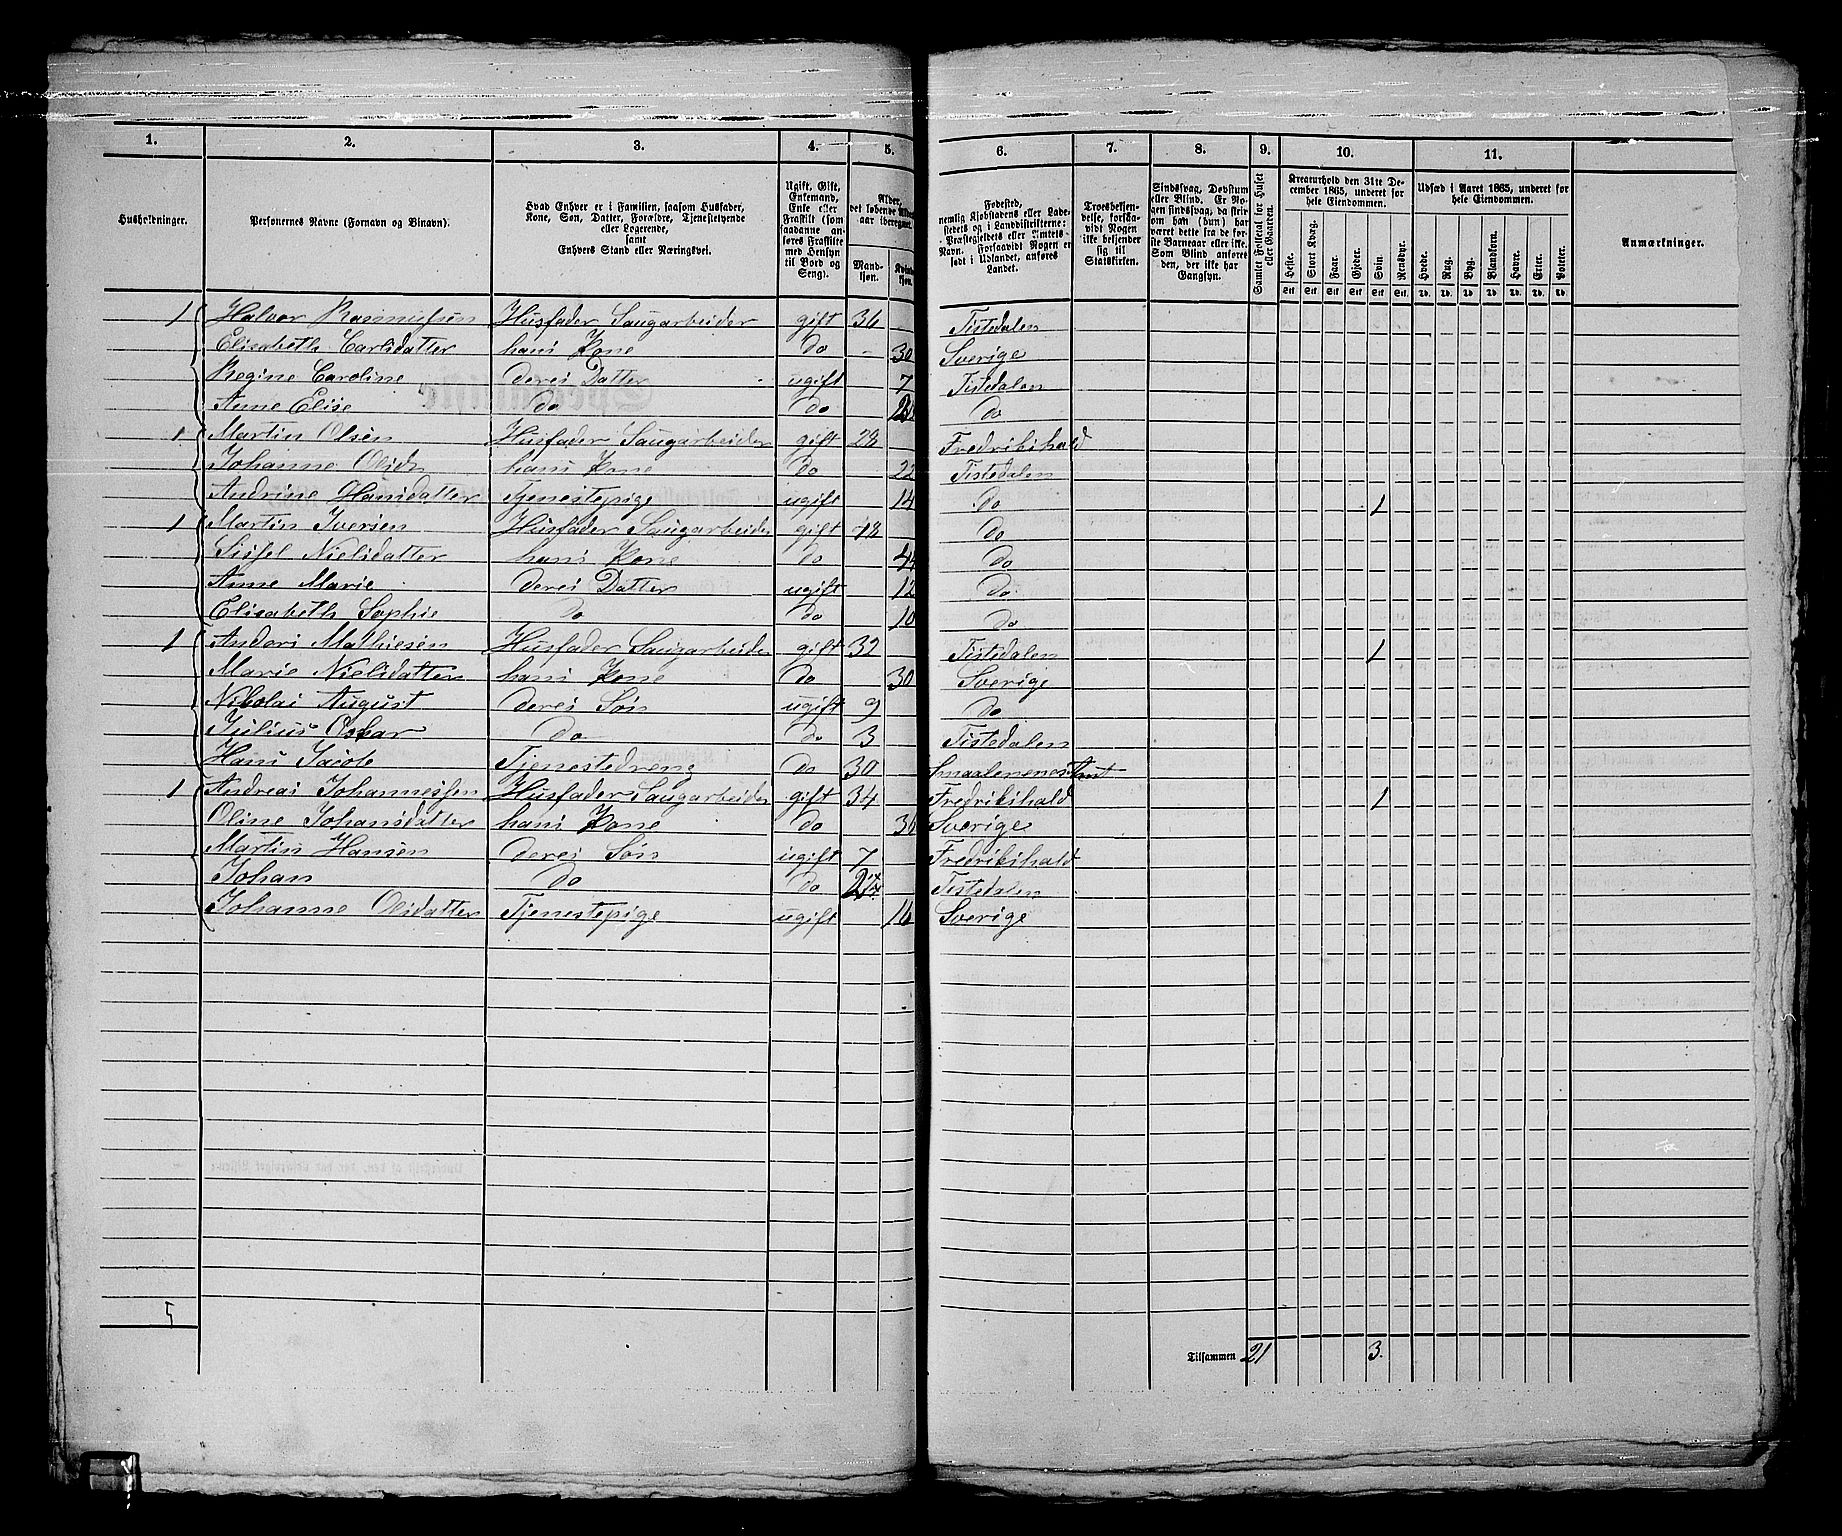 1. 2. 3. 4. 5. 6. 7. 8. 9. 10. 11.
Husholdninger.
Personernes Navne (Fornavn og Binavn).
Hvad Enhver er i Familien, saasom Husfader,
Kone, Søn, Datter, Forældre, Tjenestetyende
eller Logerende,
samt
Enhvers Stand eller Næringsvei.
Ugift, Gift,
Enkemand,
Enke eller
Fraskilt (som
saadanne an-
føres Fraskilte
med Hensyn
til Bord og
Seng).
Alder,
det løbende Alders-
aar iberegnet.
Mand-
kjøn.
Kvinde-
kjøn.
Fødested,
nemlig Kjøbstadens eller Lade-
stedets eller i Landdistrikterne:
Præstegjeldets eller Amtets
Navn. Forsaavidt Nogen er
født i Udlandet, anføres
Landet.
Troesbekjen-
delse, forsaa-
vidt Nogen
ikke bekjender
sig til
Statskirken.
Sindssvag, Døvstum
eller Blind. Er No-
gen sindssvag, da skriv
om han (hun) har
været dette fra de før-
ste Barneaar eller ikke.
Som Blind anføres
den, der ikke har
Gangsyn.
Samlet Folketal for Huset
eller Gaarden.
Kreaturhold den 31te De-
cember 1865, underet for
hele Eiendommen.
Heste. Stort Kvæg. Faar. Gjeder. Svin. Rensdyr.
Stk Stk Stk Stk Stk Stk
Udsæd i Aaret 1865, underet for
hele Eiendommen.
Hvede. Rug. Byg. Blandkorn. Havre. Erter. Poteter.
Td. Td. Td. Td. Td. Td. Td.
Anmærkninger.
1 Halvor Rasmussen Husfader Saugarbeider gift 36 Tistedalen
Elisabeth Carlsdatter hans Kone do - 30 Sverige
Regine Caroline deres Datter ugift 7 Tistedalen
Anne Elise do do do
1 Martin Olsen Husfader Saugarbeider gift 28 Fredrikshald
Johanne Olsdr hans Kone do 22 Tistedalen
Andrine Hansdatter Tjenestepige ugift 14 do 1
1 Martin Iversen Husfader Saugarbeider gift 48 do
Sissel Nielsdatter hans Kone do 44 do
Anne Marie deres Datter ugift 12 do
Elisabeth Sophie do do 10 do
1 Anders Mathiesen Husfader Saugarbeider gift 32 Tistedalen 1
Marie Nielsdatter hans Kone do 30 Sverige
Nikolai August deres Søn ugift 9 do
Julius Oskar do do 3 Tistedalen
Hans Jacob Tjenestedreng do 30 Smaalenenes Amt
1 Andreas Johannessen Husfader Saugarbeider gift 34 Fredrikshald 1
Oline Johansdatter hans Kone do 36 Sverige
Martin Hansen deres Søn ugift 7 Fredrikshald
Johan do do Tistedalen
Johanne Olsdatter Tjenestepige ugift 16 Sverige
5
Tilsammen 21 3.